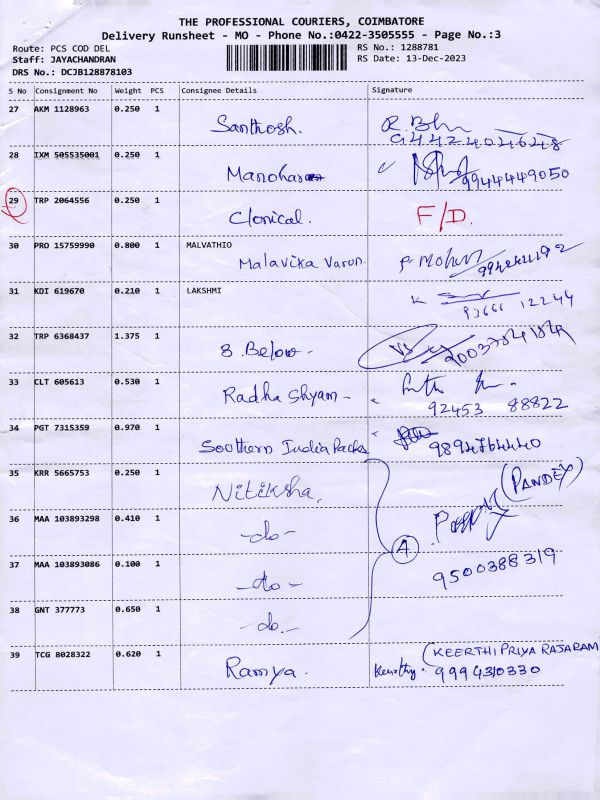 THE PROFESSIONAL COURIERS, COIMBATORE
Delivery Runsheet - MO - Phone No.:0422-3505555 - Page No.:3
Route: PCS COD DEL RS No.: 1288781
Staff: JAYACHANDRAN RS Date: 13-Dec-2023
DRS No.: DCJB128878103
S No Consignment No Weight PCS Consignee Details Signature
27 AKM 1128963 0.250 1
Santhosh.
9442404648
28 IXM 505535001 0.250 1
Manohar
9944449050
29 TRP 2064556 0.250 1
Clonical. F/D.
30 PRO 15759990 0.800 1 MALVATHIO
Malavika Varun.
31 KDI 619670 0.210 1 LAKSHMI
12244
32 TRP 6368437 1.375 1
8 Below-
33 CLT 605613 0.530 1
Radha Shyam-
92453 88822
34 PGT 7315359 0.970 1
Soothern India Packs 9894764440
35 KRR 5665753 0.250 1
Nitiksha, (PANDEY)
36 MAA 103893298 0.410 1
-do-
4
37 MAA 103893086 0.100 1
-do- 9500388319
38 GNT 377773 0.650 1
-do.-
39 TCG 8028322 0.620 1 (KEERTHI PRIYA RAJARAM
Ramya. Keerthy. 9994310330